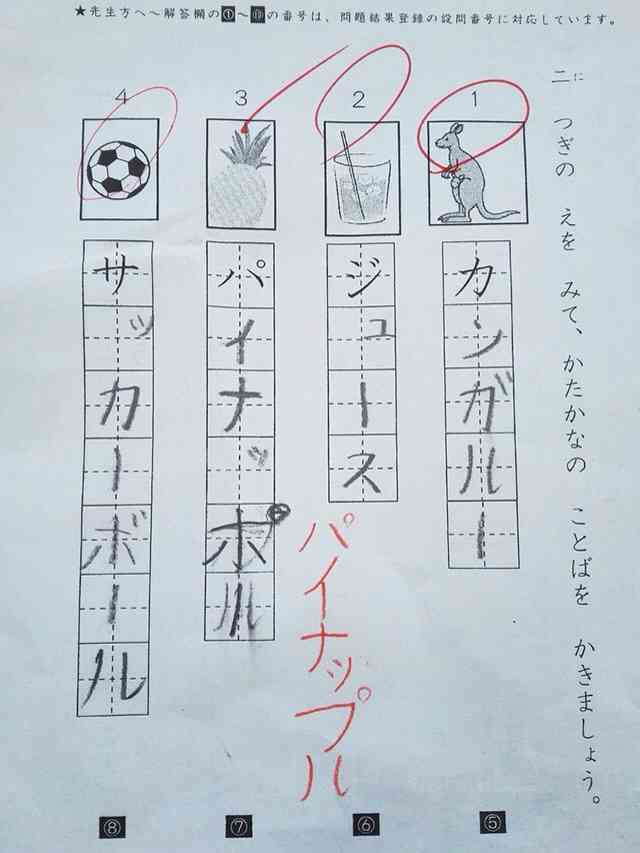 ★先生方へ～解答欄の①～⑪の番号は、問題結果登録の設問番号に対応しています。
二 に つぎの えを みて、かたかなの ことばを かきましょう。
1
カンガルー
⑤
2
ジュース
⑥
3
パイナッポル
パイナップル
⑦
4
サッカーボール
⑧